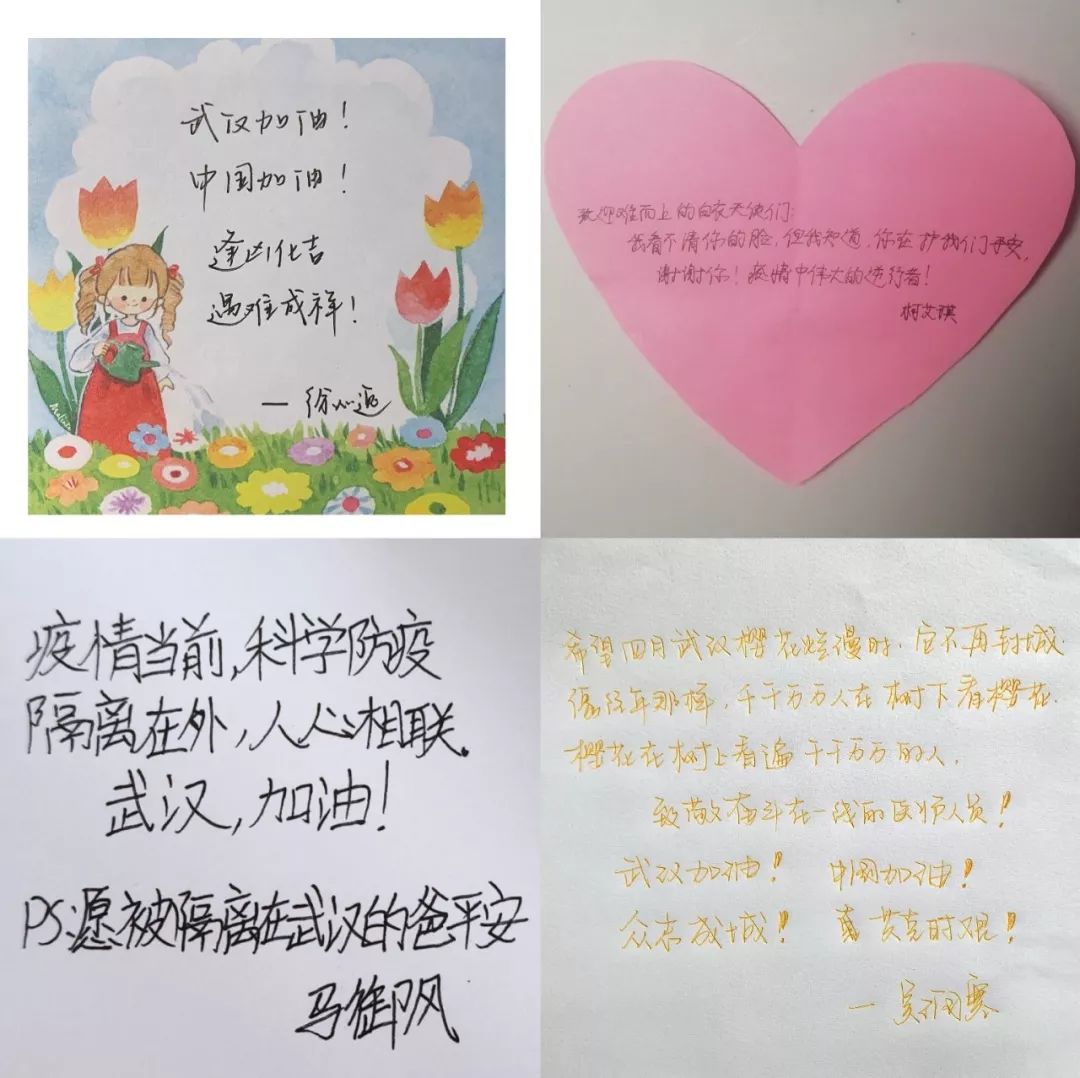 武汉加油！
中国加油！
逢凶化吉
遇难成祥！
— 徐心
致迎难而上的白衣天使们：
我看不清你的脸，但我知道，你在护我们平安，
谢谢你！疫情中伟大的逆行者！
柯艾琪
疫情当前，科学防疫
隔离在外，人心相联。
武汉，加油！
PS：愿被隔离在武汉的爸平安
马御风
希望四月武汉樱花烂漫时，它不再封城
像往年那样，千千万万人在树下看樱花.
樱花在树上看遍千千万万的人.
致敬奋斗在一线的医护人员！
武汉加油！ 中国加油！
众志成城！ 共克时艰！
— 吴雨